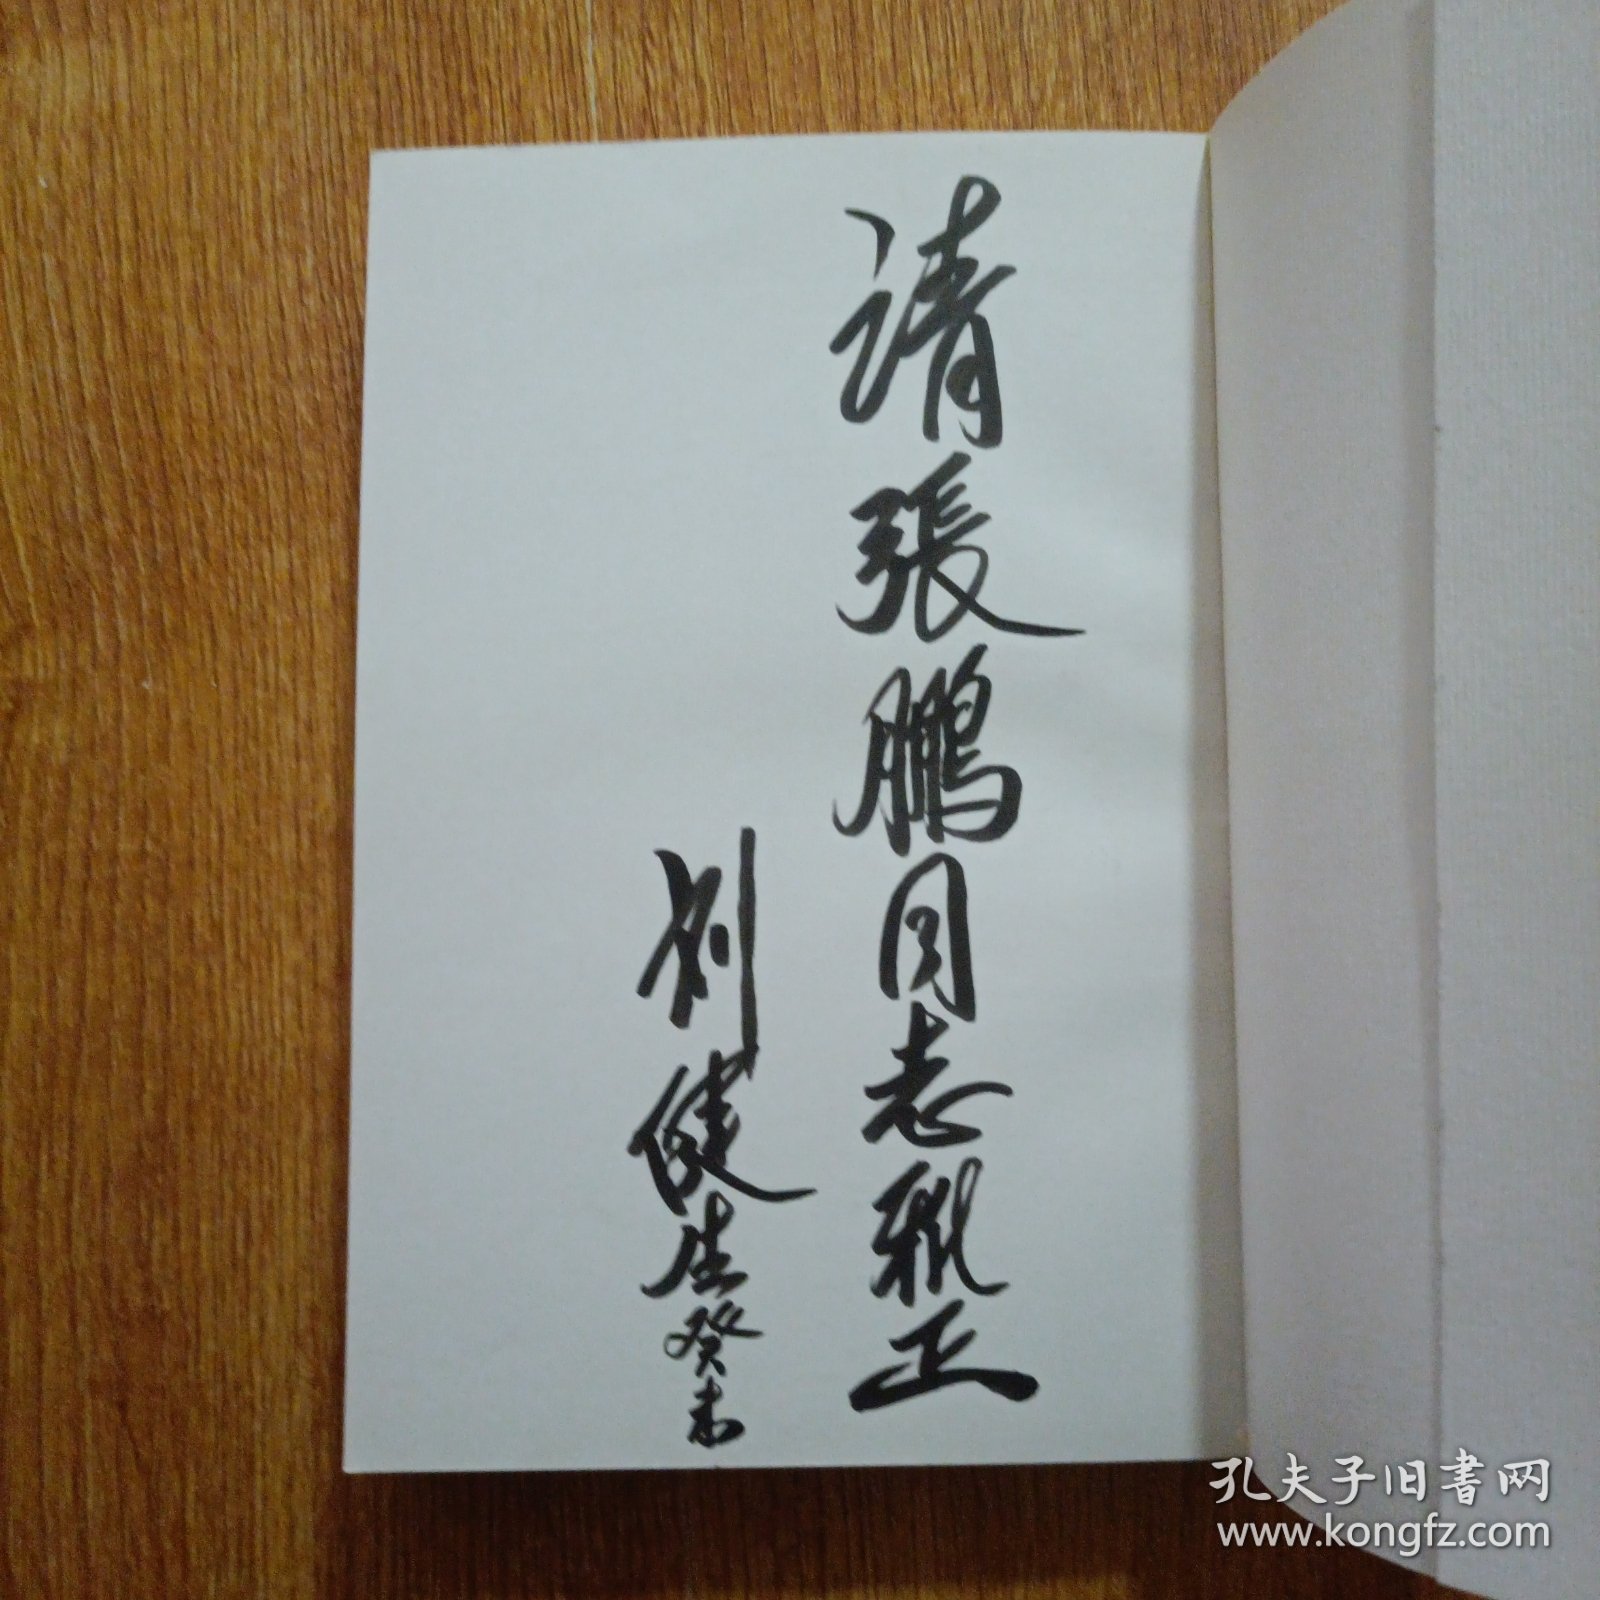 请張鵬同志雅正
刘健生癸未
孔夫子旧書网
www.kongfz.com